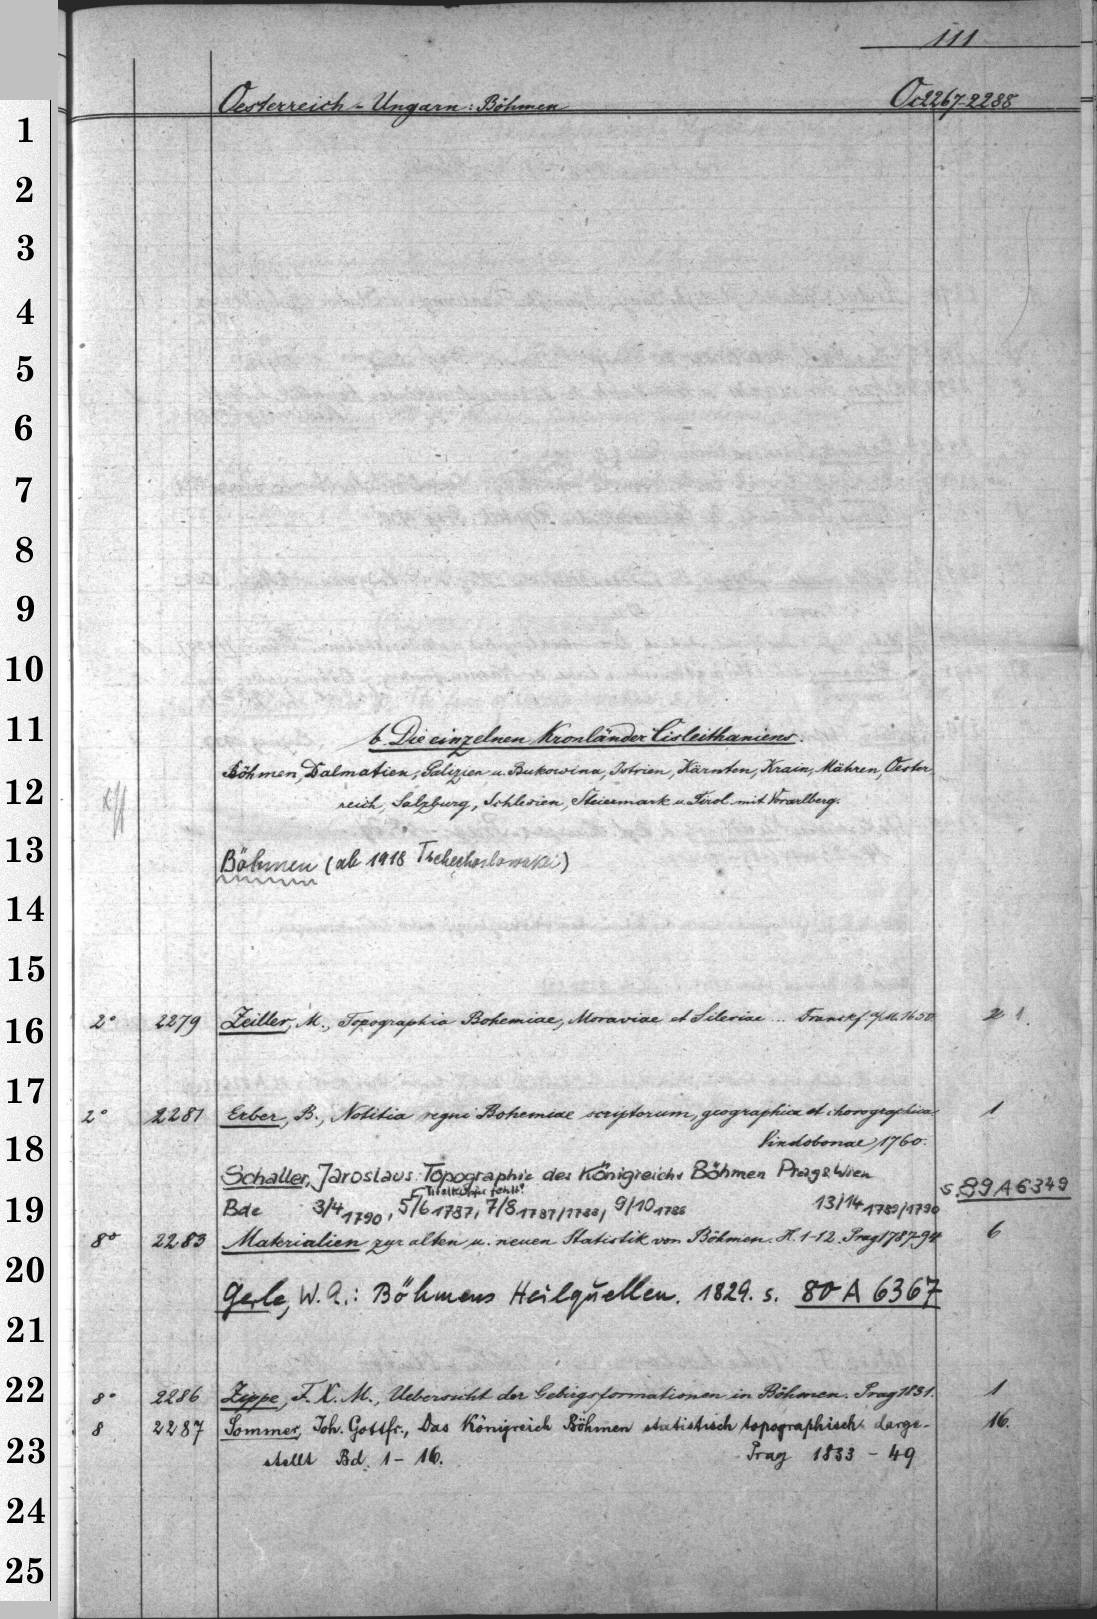 111
Oesterreich-Ungarn: Böhmen Oc2267-2288
1
2
3
4
5
6
7
8
9
10
11
12
13
14
15
16
17
18
19
20
21
22
23
24
25
b. Die einzelnen Kronländer Cisleithaniens.
Böhmen, Dalmatien, Galizien u. Bukowina, Istrien, Kärnten, Krain, Mähren, Oester
reich, Salzburg, Schlesien, Steiermark u. Tirol mit Vorarlberg.
Böhmen (ab 1918 Tschechoslowakei)
2° 2279 Zeiller, M., Topographia Bohemiae, Moraviae et Silesiae ... Franckf. a/M. 1650. 1.
2° 2281 Erber, B., Notitia regni Bohemiae scriptorum, geographica et chorographica 1
Vindobonae, 1760.
Schaller, Jaroslaus: Topographie des Königreichs Böhmen Prag & Wien
Titelkupfer fehlt!
Bde 3/4 1790, 5/6 1787, 7/8 1787/1788, 9/10 1788 13/14 1789/1790 s. 89 A 6349
8° 2283 Materialien zur alten u. neuen Statistik von Böhmen. H. 1-12. Prag 1787-94 6
Gerle, W. A.: Böhmens Heilquellen. 1829. s. 80 A 6367
8° 2286 Zippe, F. X. M., Uebersicht der Gebirgsformationen in Böhmen. Prag 1831. 1
8 2287 Sommer, Joh. Gottfr., Das Königreich Böhmen statistisch topographisch darge- 16.
stellt Bd. 1-16. Prag 1833-49